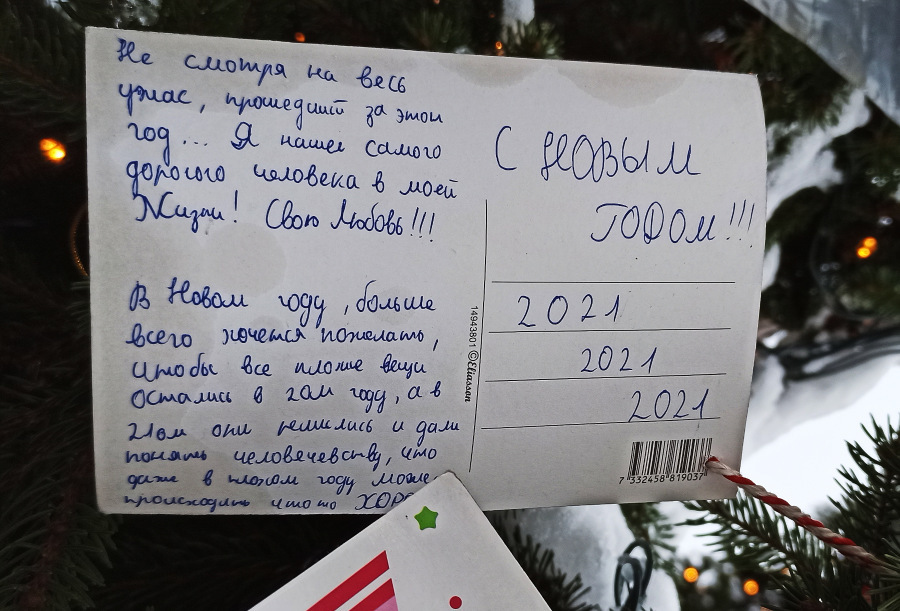 Не смотря на весь
ужас, прошедший за этот
год... Я нашел самого
дорогого человека в моей
Жизни! Свою Любовь!!!
В Новом году, больше
всего хочется пожелать,
чтобы все плохие вещи
остались в 20м году, а в
21ом они решились и дали
понять человечевству, что
даже в плохом году може
происходить что то ХОР
С НОВЫМ
ГОДОМ!!!
2021
2021
2021
14943801 ©Eliasson
7 332458 819037